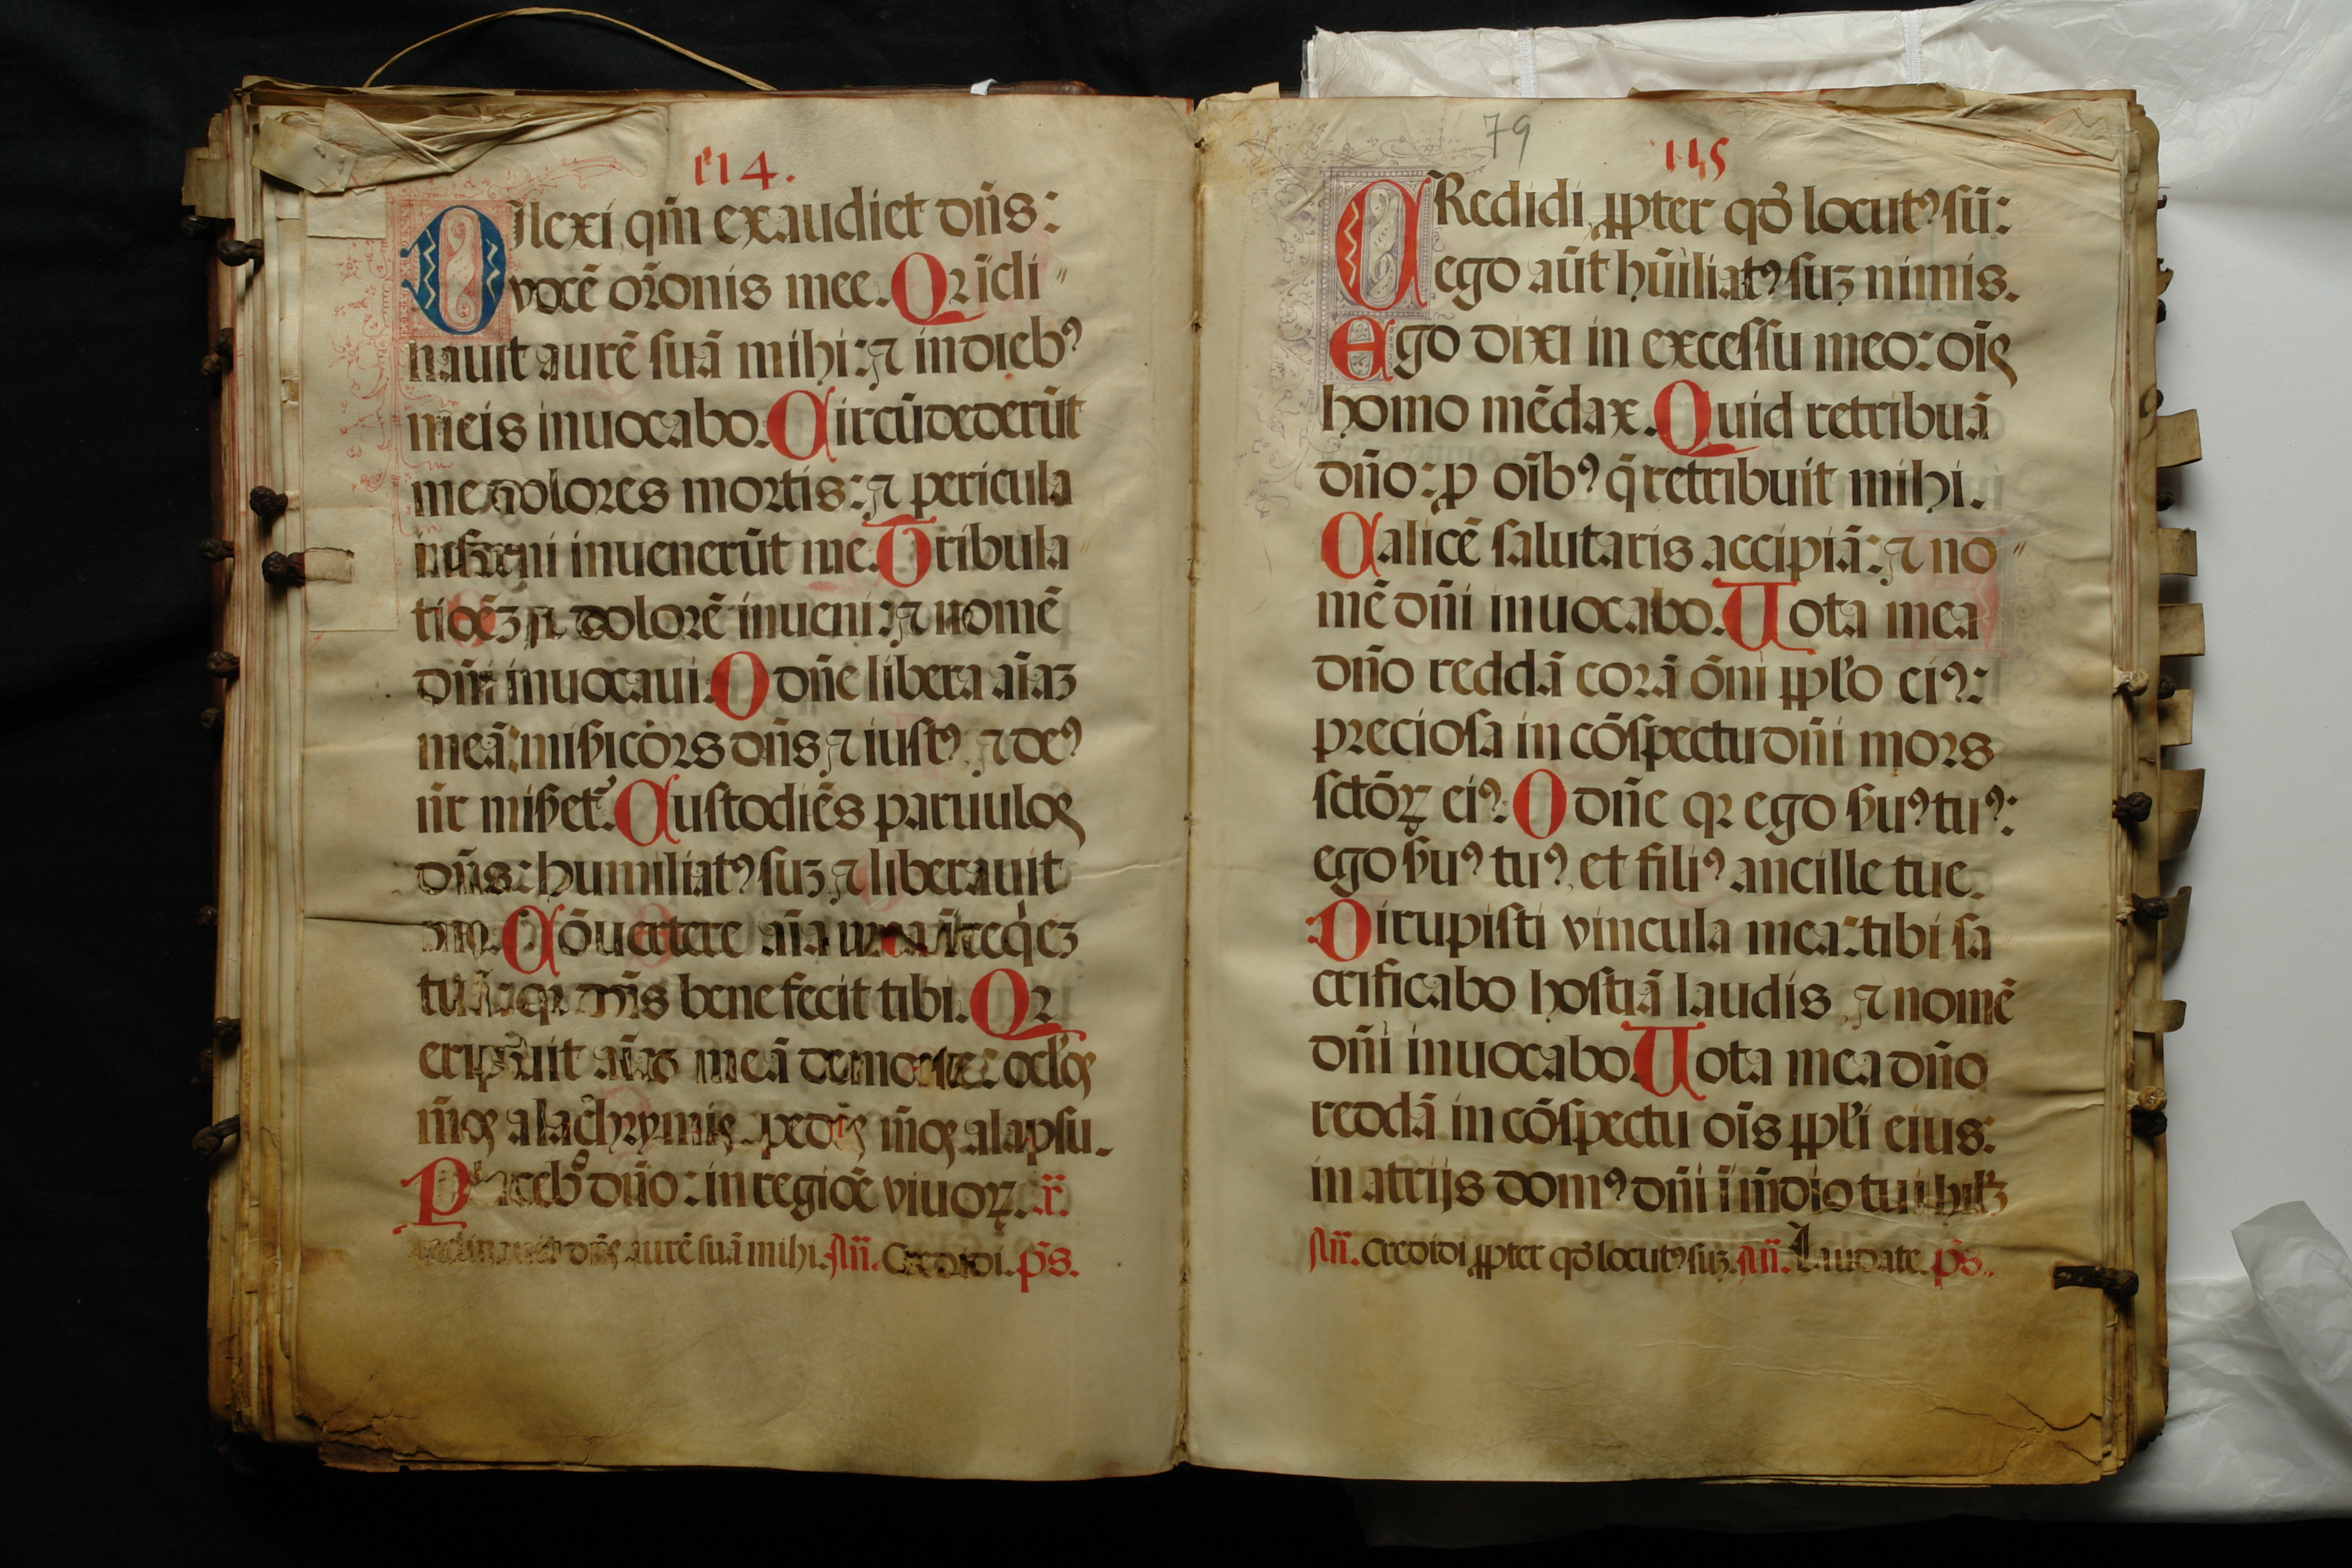 114.
Dilexi qm̄ exaudiet dn̄s:
vocē or̄onis mee. Qꝛ īcli
nauit aurē ſuā mihi: ⁊ in dieb⁹
meis inuocabo. Circūdederūt
me dolores mortis: ⁊ pericula
inferni inuenerūt me. Tribula
tioēꝫ ⁊ dolorē inueni: ⁊ nomē
dn̄i inuocaui. O dn̄e libera aīaꝫ
meā: miẜicōrs dn̄s ⁊ iuſt⁹ ⁊ de⁹
nr̄ miẜet᷑. Cuſtodiēs paruulos
dn̄s: humiliat⁹ ſuꝫ ⁊ liberauit
me. Cōuertere aīa mea ī reqēꝫ
tuā: qꝛ dn̄s benefecit tibi. Qꝛ
eripuit aīaꝫ meā de morte: ocl̓os
m̄os a lachrymis pedēs m̄os a lapſu.
Placebo dn̄o: in regiōe viuoꝝ.
Inclinauit dn̄s aurē ſuā mihi. An̄. Credidi. p̄s.
79
115
CRedidi ꝓpter qđ locut⁹ ſū:
ego aūt hūiliat⁹ ſuꝫ nimis.
Ego dixi in exceſſu meo: oīs
homo mēdax. Quid retribuā
dn̄o: ꝓ oīb⁹ q̄ retribuit mihi.
Calicē ſalutaris accipiā: ⁊ no
mē dn̄i inuocabo. Uota mea
dn̄o reddā corā ōni ꝓpl̓o ei⁹:
precioſa in cōſpectu dn̄i mors
ſctōꝝ ei⁹: O dn̄e qꝛ ego ẜu⁹ tu⁹:
ego ẜu⁹ tu⁹, et fili⁹ ancille tue.
Dirupiſti vincula mea: tibi ſa
crificabo hoſtiā laudis ⁊ nomē
dn̄i inuocabo. Uota mea dn̄o
reddā in cōſpectu oīs ꝓpl̓i eius:
in atrijs dom⁹ dn̄i ī m̄dio tui hil̓ꝫ
An̄. Credidi ꝓpter qđ locut⁹ ſuꝫ. An̄. Laudate. p̄s.